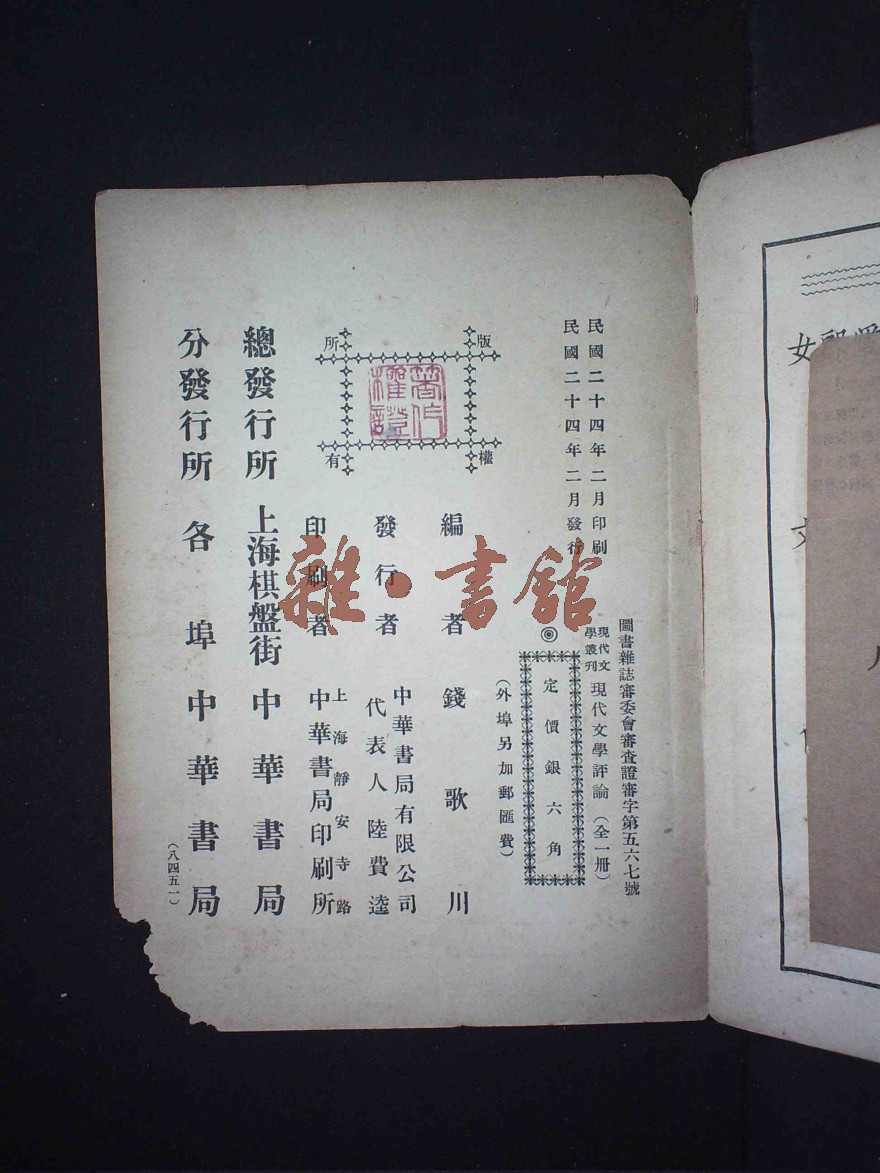 圖書雜誌審委會審查證審字第五六七號
民國二十四年二月印刷
民國二十四年二月發行
現代文學叢刊
現代文學評論（全一冊）
◎定價銀六角
（外埠另加郵匯費）
版權所有
著作權證
編者 錢歌川
發行者 中華書局有限公司
代表人陸費逵
印刷者 上海靜安寺路
中華書局印刷所
總發行所 上海棋盤街 中華書局
分發行所 各埠 中華書局
（八四五一）
雜·書館
女